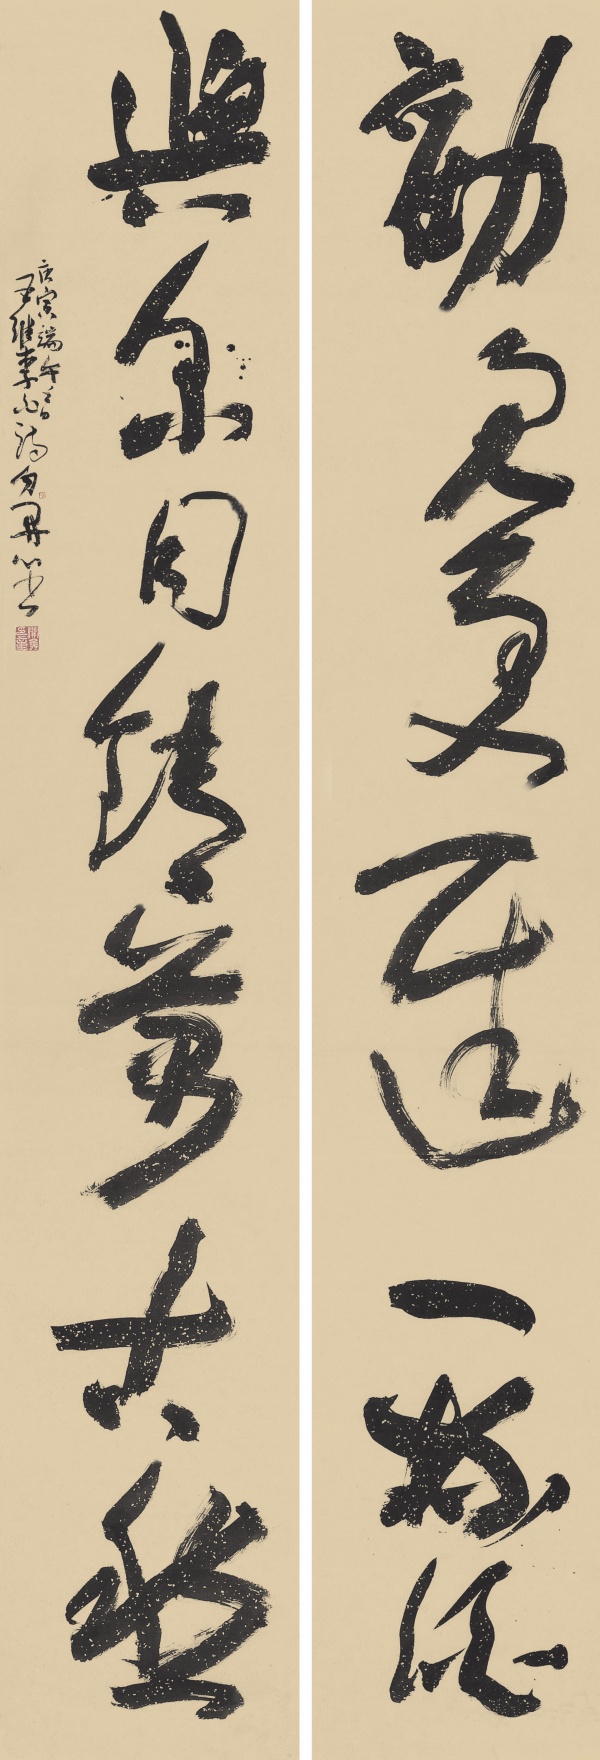 勸君更進一杯酒
與尔同銷萬古愁
庚寅端午
王維李白詩句